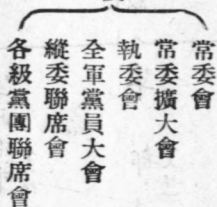 常委會
常委擴大會
執委會
全軍黨員大會
縱委聯席會
各級黨團聯席會